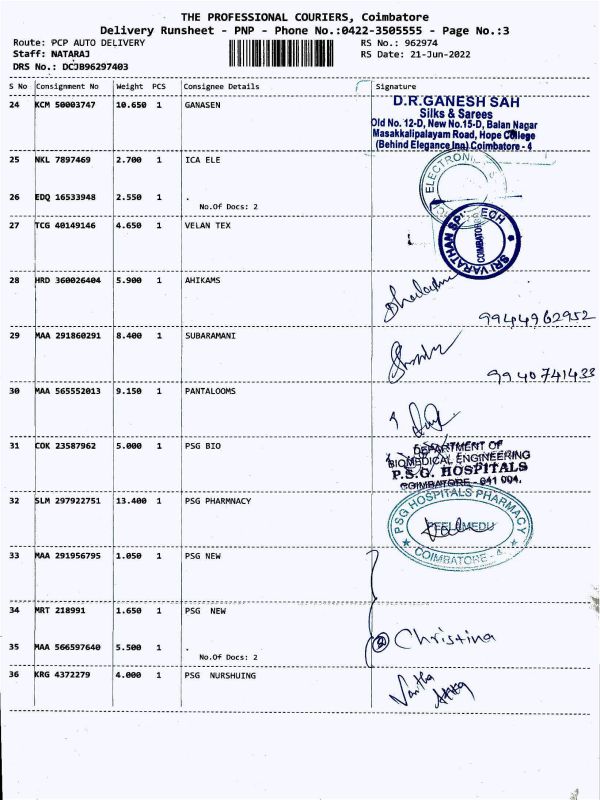 THE PROFESSIONAL COURIERS, Coimbatore
Delivery Runsheet - PNP - Phone No.:0422-3505555 - Page No.:3
Route: PCP AUTO DELIVERY RS No.: 962974
Staff: NATARAJ RS Date: 21-Jun-2022
DRS No.: DCJB96297403
S No Consignment No Weight PCS Consignee Details Signature
24 KCM 50003747 10.650 1 GANASEN
D.R.GANESH SAH
Silks & Sarees
Old No. 12-D, New No.15-D, Balan Nagar
Masakkalipalayam Road, Hope College
(Behind Elegance Inn) Coimbatore - 4
25 NKL 7897469 2.700 1 ICA ELE
ELECTRONIC
26 EDQ 16533948 2.550 1 .
No.Of Docs: 2
27 TCG 40149146 4.650 1 VELAN TEX
SRI VARATHAN
COIMBATORE
28 HRD 360026404 5.900 1 AHIKAMS
9944962952
29 MAA 291860291 8.400 1 SUBARAMANI
9940741433
30 MAA 565552013 9.150 1 PANTALOOMS
31 COK 23587962 5.000 1 PSG BIO
DEPARTMENT OF
BIOMEDICAL ENGINEERING
P.S.G. HOSPITALS
COIMBATORE - 641 004.
32 SLM 297922751 13.400 1 PSG PHARMNACY
PSG HOSPITALS PHARMACY
PEELAMEDU
COIMBATORE - 4
33 MAA 291956795 1.050 1 PSG NEW
34 MRT 218991 1.650 1 PSG NEW
35 MAA 566597640 5.500 1 .
No.Of Docs: 2
Christina
36 KRG 4372279 4.000 1 PSG NURSHUING